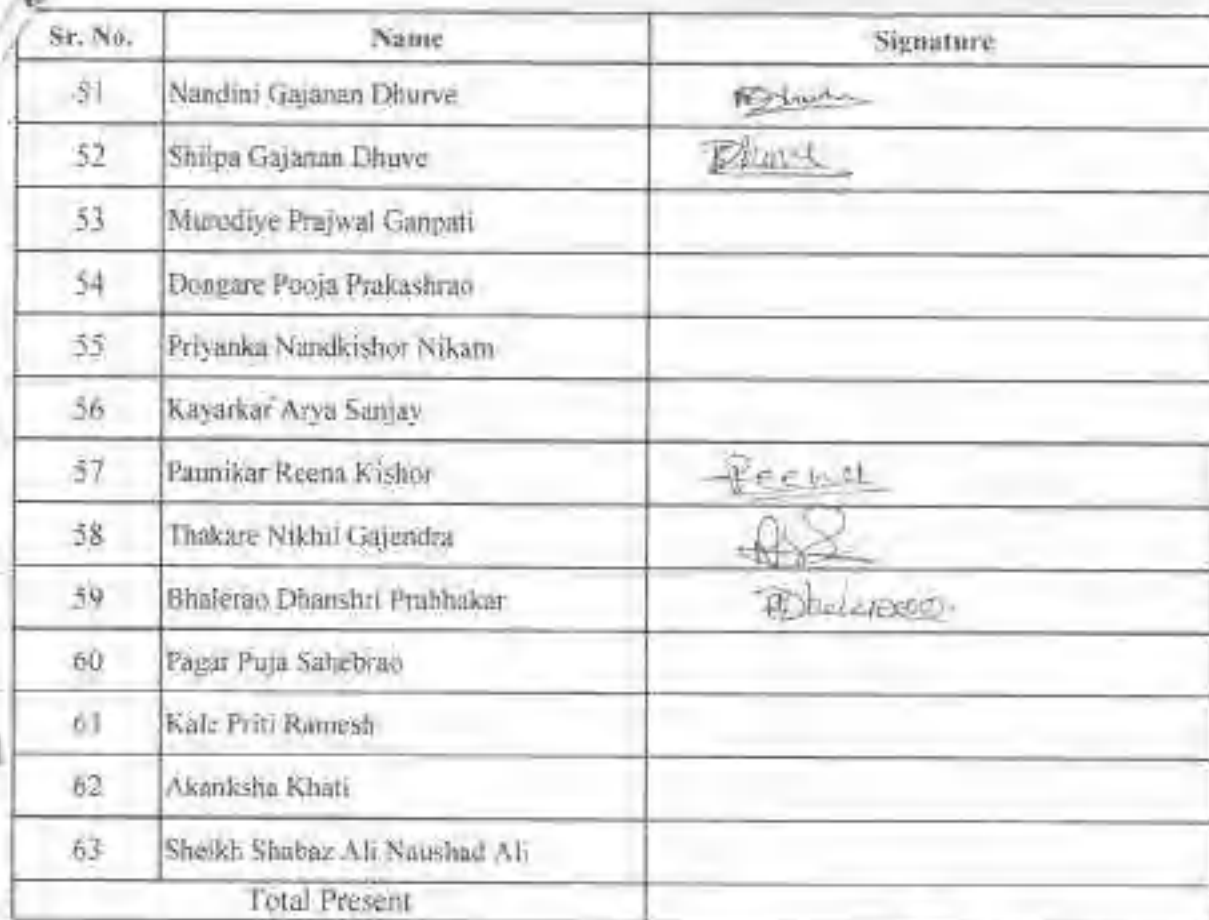 Sr. No. Name Signature
51 Nandini Gajanan Dhurve
52 Shilpa Gajanan Dhuve Dhuve
53 Murodiye Prajwal Ganpati
54 Dongare Pooja Prakashrao
55 Priyanka Nandkishor Nikam
56 Kayarkar Arya Sanjay
57 Paunikar Reena Kishor Reena
58 Thakare Nikhil Gajendra
59 Bhalerao Dhanshri Prabhakar
60 Pagar Puja Sahebrao
61 Kale Priti Ramesh
62 Akanksha Khati
63 Sheikh Shabaz Ali Naushad Ali
Total Present